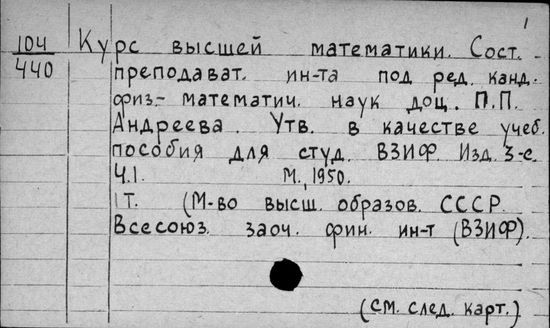 1
104 Курс высшей математики. Сост.
440 преподават. ин-та под ред. канд.
физ.- математич. наук доц. П.П.
Андреева. Утв. в качестве учеб.
пособия для студ. ВЗИФ. Изд. 3-е.
Ч.1. М., 1950.
1Т. (М-во высш. образов. СССР.
Всесоюз. заоч. фин. ин-т (ВЗИФ).
(см. след. карт.)